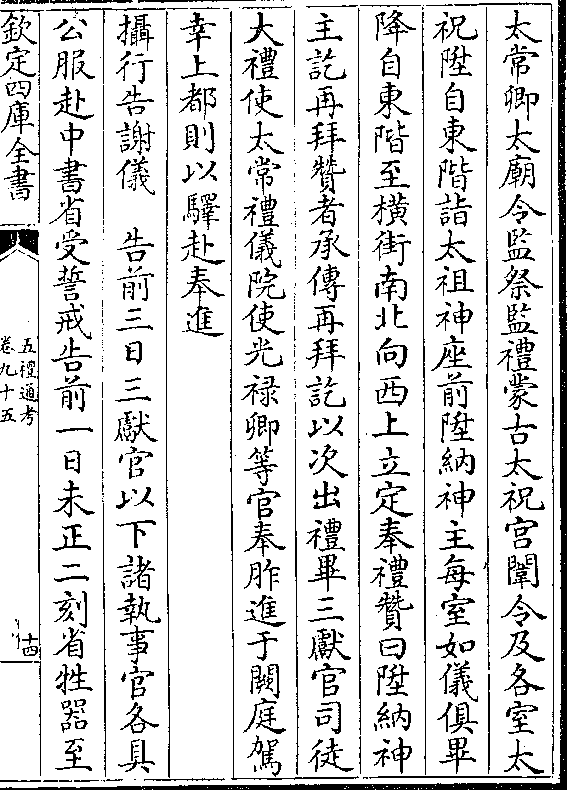 太常卿太廟令監祭監禮蒙古太祝宫闈令及各室太
祝陞自東階詣太祖神座前陞納神主每室如儀俱畢
降自東階至橫街南北向西上立定奉禮贊曰陞納神
主訖再拜贊者承傳再拜訖以次出禮畢三獻官司徒
大禮使太常禮儀院使光禄卿等官奉胙進于闕庭駕
幸上都則以驛赴奉進
攝行告謝儀　告前三日三獻官以下諸執事官各具
公服赴中書省受誓戒告前一日未正二刻省牲器至
欽定四庫全書
五禮通考
卷九十五
十四